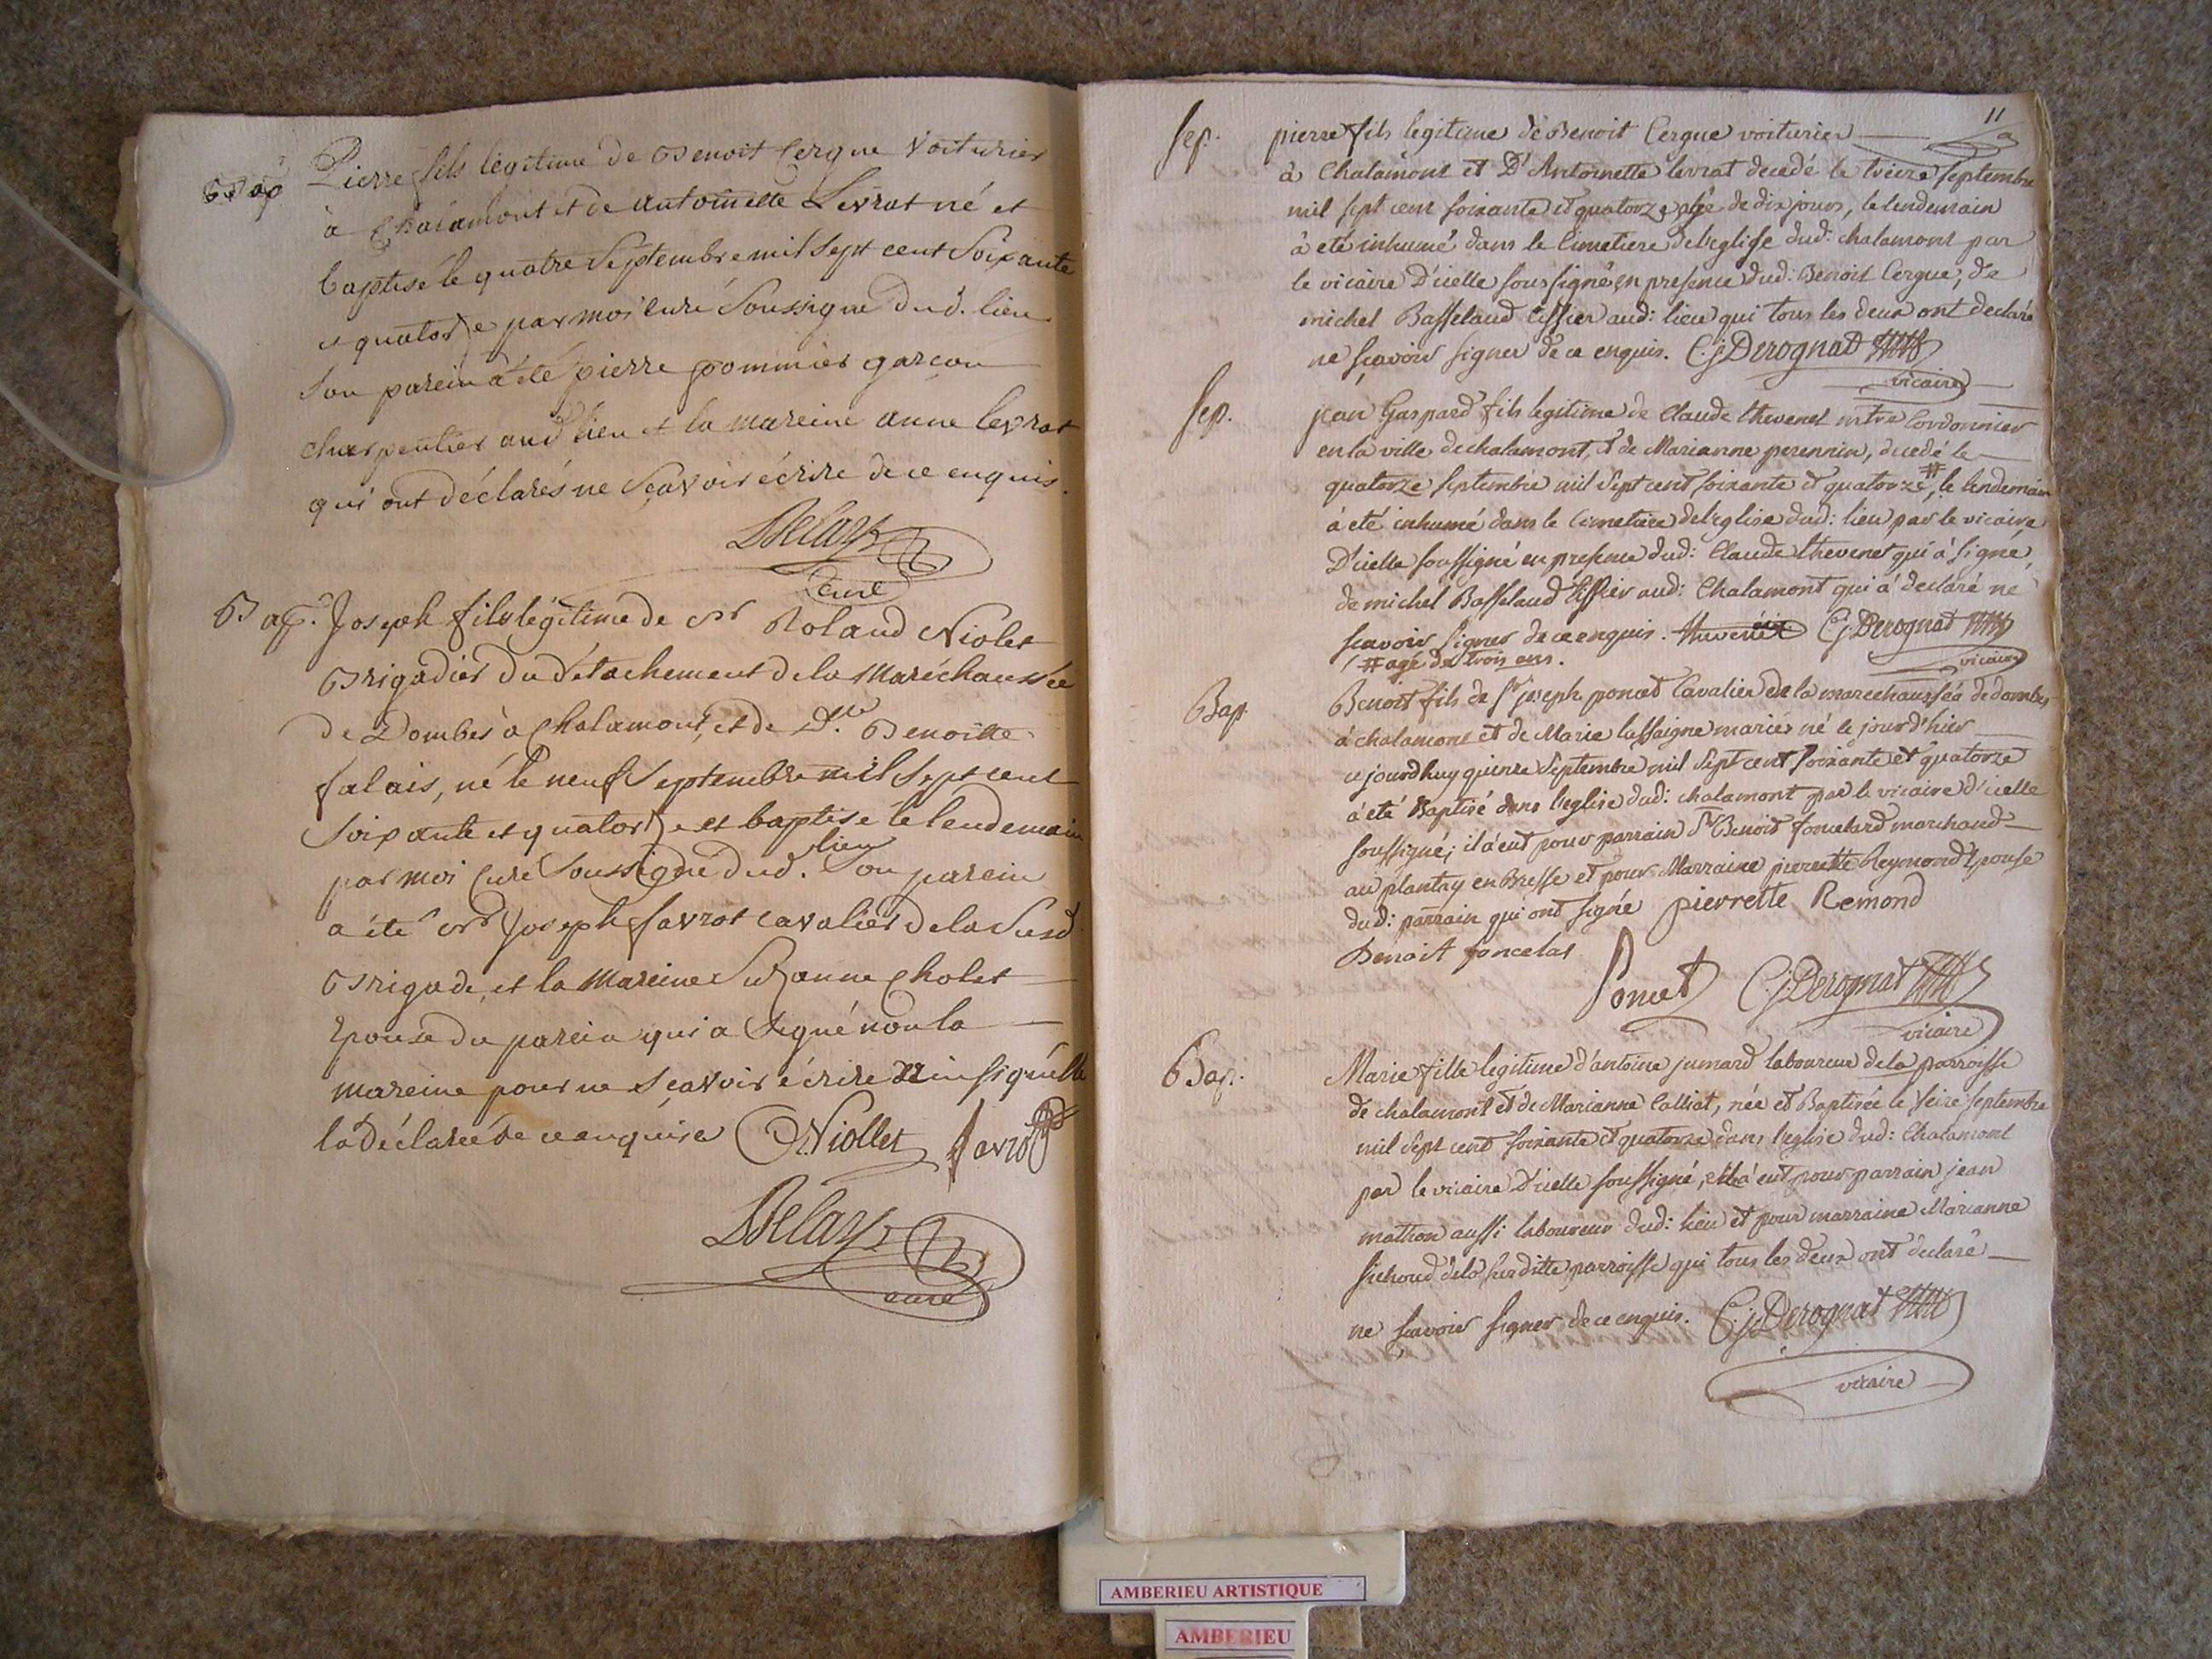 Bap. Pierre fils légitime de Benoit Cergue Voiturier
à Chalamont et de antoinette Levrat né et
baptisé le quatre Septembre mil Sept cent Soixante
et quatorze par moi curé Soussigné dud. lieu
Son parein a été pierre pommier garcon
charpentier aud lieu et la mareine anne levrat
qui ont déclarés ne Sçavoir écrire de ce enquis.
Delary
curé
Bap. Joseph fils légitime de Sr Roland Niolet
Brigadier du détachement de la Maréchaussée
de Dombes à Chalamont, et de Dlle Benoitte
falais, né le neuf Septembre mil Sept cent
Soixante et quatorze et baptisé le lendemain
par moi Curé Soussigné dud. lieu Son parein
a été Sr Joseph favrot cavalier de la Susd
Brigade, et la Mareine Suzanne Cholet
Epouse du parein qui a Signé non la
mareine pour ne Sçavoir écrire
la déclarée de ce enquise Niollet favrot
Delary
curé
11
Sep. pierre fils legitime de Benoit Cergue voiturier
à Chalamont et D'Antoinette levrat decedé le treize septembre
mil sept cent soixante et quatorze agé de dix jours, le lendemain
à eté inhumé dans le Cimetiere de l'eglise dud: chalamont par
le vicaire D'icelle soussigné en presence dud: Benoit Cergue, de
michel Basseland tissier aud: lieu qui tous les deux ont declaré
ne sçavoir signer de ce enquis. C.j. Derognat
vicaire
Sep. jean Gaspard fils legitime de Claude thevenet mtre Cordonnier
en la ville de chalamont, et de Marianne perennin, decedé le
quatorze septembre mil sept cent soixante et quatorze #, le lendemain
à eté inhumé dans le Cimetiere de l'eglise dud: lieu par le vicaire
D'icelle soussigné en presence dud: Claude thevenet qui à signé,
de michel Basseland tissier aud: Chalamont qui à declaré ne
scavoir signer de ce enquis. thevenet C.j. Derognat
/ # agé de trois ans. vicaire
Bap. Benoit fils de Sr joseph poncet Cavalier de la marechaussée de dombes
à chalamont et de Marie lassaigne mariés né le jour d'hier
ce jourdhuy quinze septembre mil sept cent soixante et quatorze
à eté Baptisé dans l'eglise dud: chalamont par le vicaire d'icelle
soussigné; il à eut pour parrain Sr Benoit foncelard marchand
au plantay en Bresse et pour Marraine pierrette Reymond Epouse
dud: parrain qui ont signé pierrette Remond
Benoit foncelas
Poncet C.j. Derognat
vicaire
Bap: Marie fille legitime d'antoine jumard laboureur de la parroisse
de chalamont et de Marianne Calliat, née et Baptisée le seize septembre
mil sept cent soixante et quatorze dans l'eglise dud: Chalamont
par le vicaire d'icelle soussigné, elle à eut pour parrain jean
mathon aussi laboureur dud: lieu et pour marraine Marianne
de la susditte parroisse qui tous les deux ont declaré
ne scavoir signer de ce enquis. C.j. Derognat
vicaire
AMBERIEU ARTISTIQUE
AMBERIEU